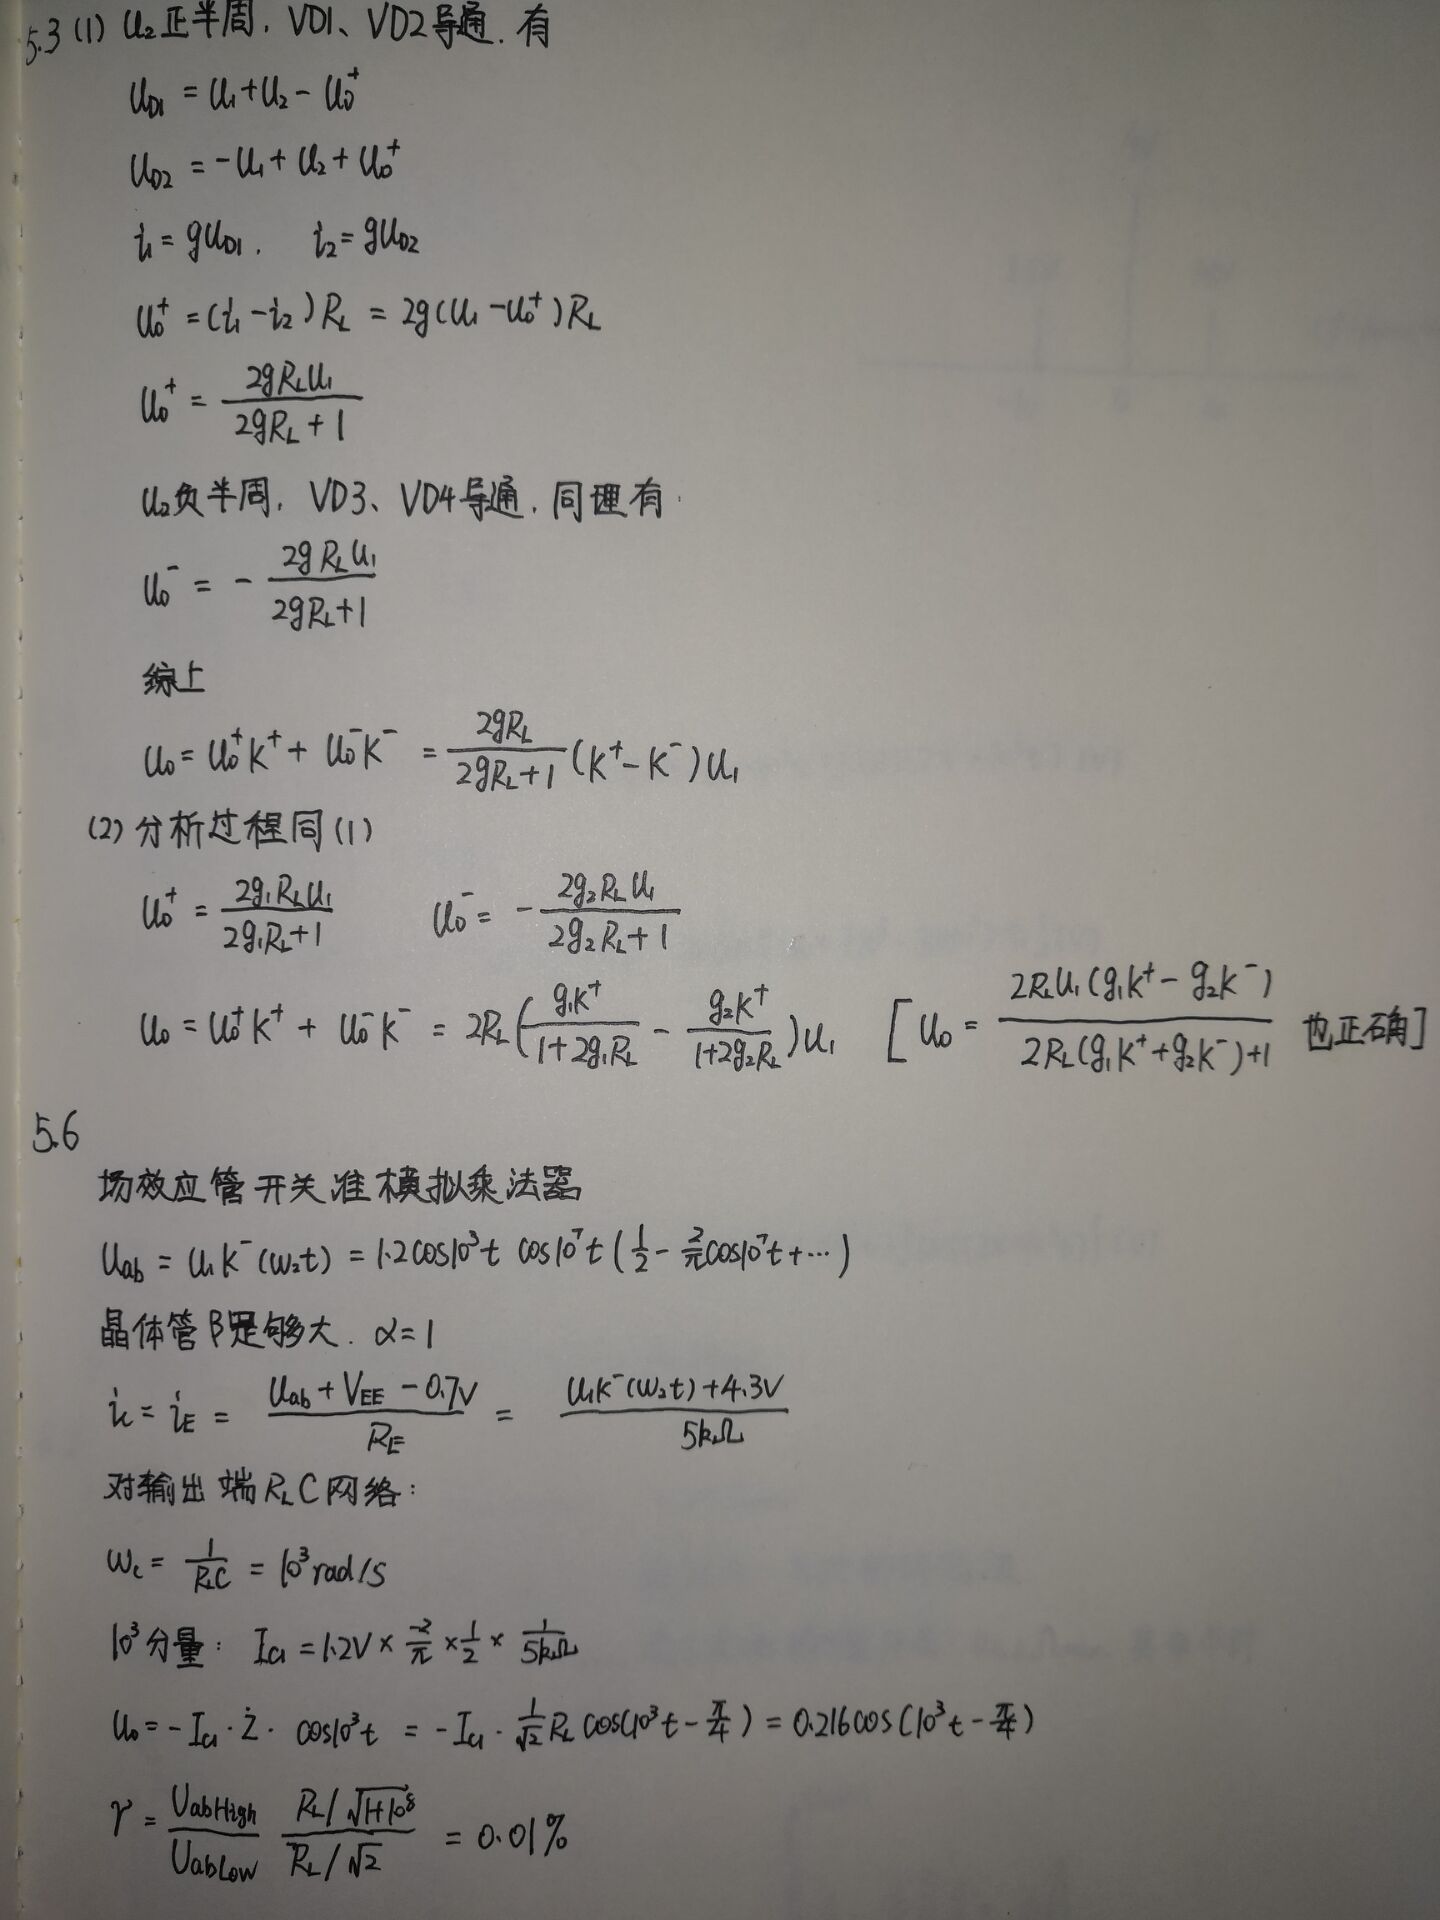 5.3 (1) U₂正半周, VD1、VD2导通. 有
U_D1 = U₁+U₂-U₀⁺
U_D2 = -U₁+U₂+U₀⁺
i₁=gU_D1. i₂=gU_D2
U₀⁺=(i₁-i₂)R_L = 2g(U₁-U₀⁺)R_L
U₀⁺ = 2gR_LU₁ / (2gR_L+1)
U₂负半周, VD3、VD4导通. 同理有:
U₀⁻ = - 2gR_LU₁ / (2gR_L+1)
综上
U₀=U₀⁺K⁺+U₀⁻K⁻ = 2gR_L / (2gR_L+1) (K⁺-K⁻)U₁
(2) 分析过程同(1)
U₀⁺ = 2g₁R_LU₁ / (2g₁R_L+1) U₀⁻ = - 2g₂R_LU₁ / (2g₂R_L+1)
U₀ = U₀⁺K⁺ + U₀⁻K⁻ = 2R_L(g₁K⁺ / (1+2g₁R_L) - g₂K⁺ / (1+2g₂R_L))U₁ [U₀ = 2R_LU₁(g₁K⁺-g₂K⁻) / (2R_L(g₁K⁺+g₂K⁻)+1) 也正确]
5.6
场效应管开关准模拟乘法器
U_ab = U₁K⁻(ω₂t) = 1.2cos10³t cos10⁷t(1/2 - 2/π cos10⁷t+…)
晶体管β足够大. α=1
i_c=i_E = (U_ab+V_EE-0.7V) / R_E = (U₁K⁻(ω₂t)+4.3V) / 5kΩ
对输出端R_LC网络:
ω_c = 1 / R_LC = 10³rad/s
10³分量: I_c1=1.2V× -2/π × 1/2 × 1/5kΩ
U₀=-I_c1·Ż·cos10³t = -I_c1·1/√2 R_L cos(10³t-π/4)=0.216cos(10³t-π/4)
γ = U_abHigh / U_abLow · (R_L/√(1+10⁸)) / (R_L/√2) = 0.01%